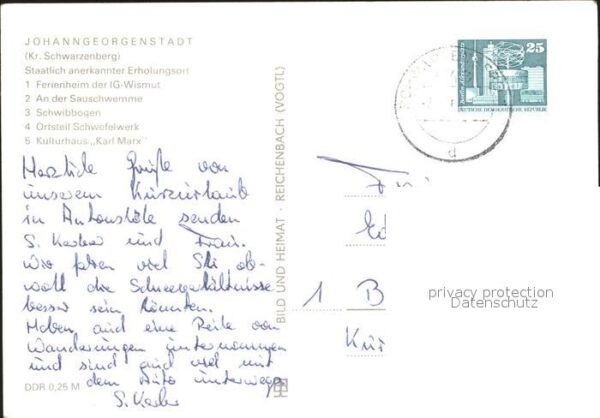 JOHANNGEORGENSTADT
(Kr. Schwarzenberg)
Staatlich anerkannter Erholungsort
1 Ferienheim der IG-Wismut
2 An der Sauschwemme
3 Schwibbogen
4 Ortsteil Schwefelwerk
5 Kulturhaus „Karl Marx"
Herzliche Grüße von
unserem Kurzurlaub
in senden
S. und Frau.
Wir fahren viel Ski ob-
wohl die Schneeverhältnisse
besser sein könnten.
Haben auch eine Reihe von
Wanderungen unternommen
und sind auch viel mit
dem Auto unterwegs
S.
DDR 0,25 M
BILD UND HEIMAT · REICHENBACH (VOGTL)
25
DEUTSCHE DEMOKRATISCHE REPUBLIK
d
1 B
privacy protection
Datenschutz